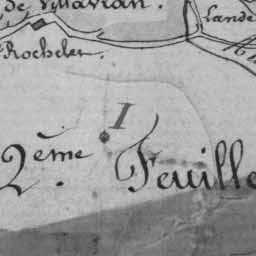 de Villavran.
Lande
Rochelet.
I
2.ème Feuille